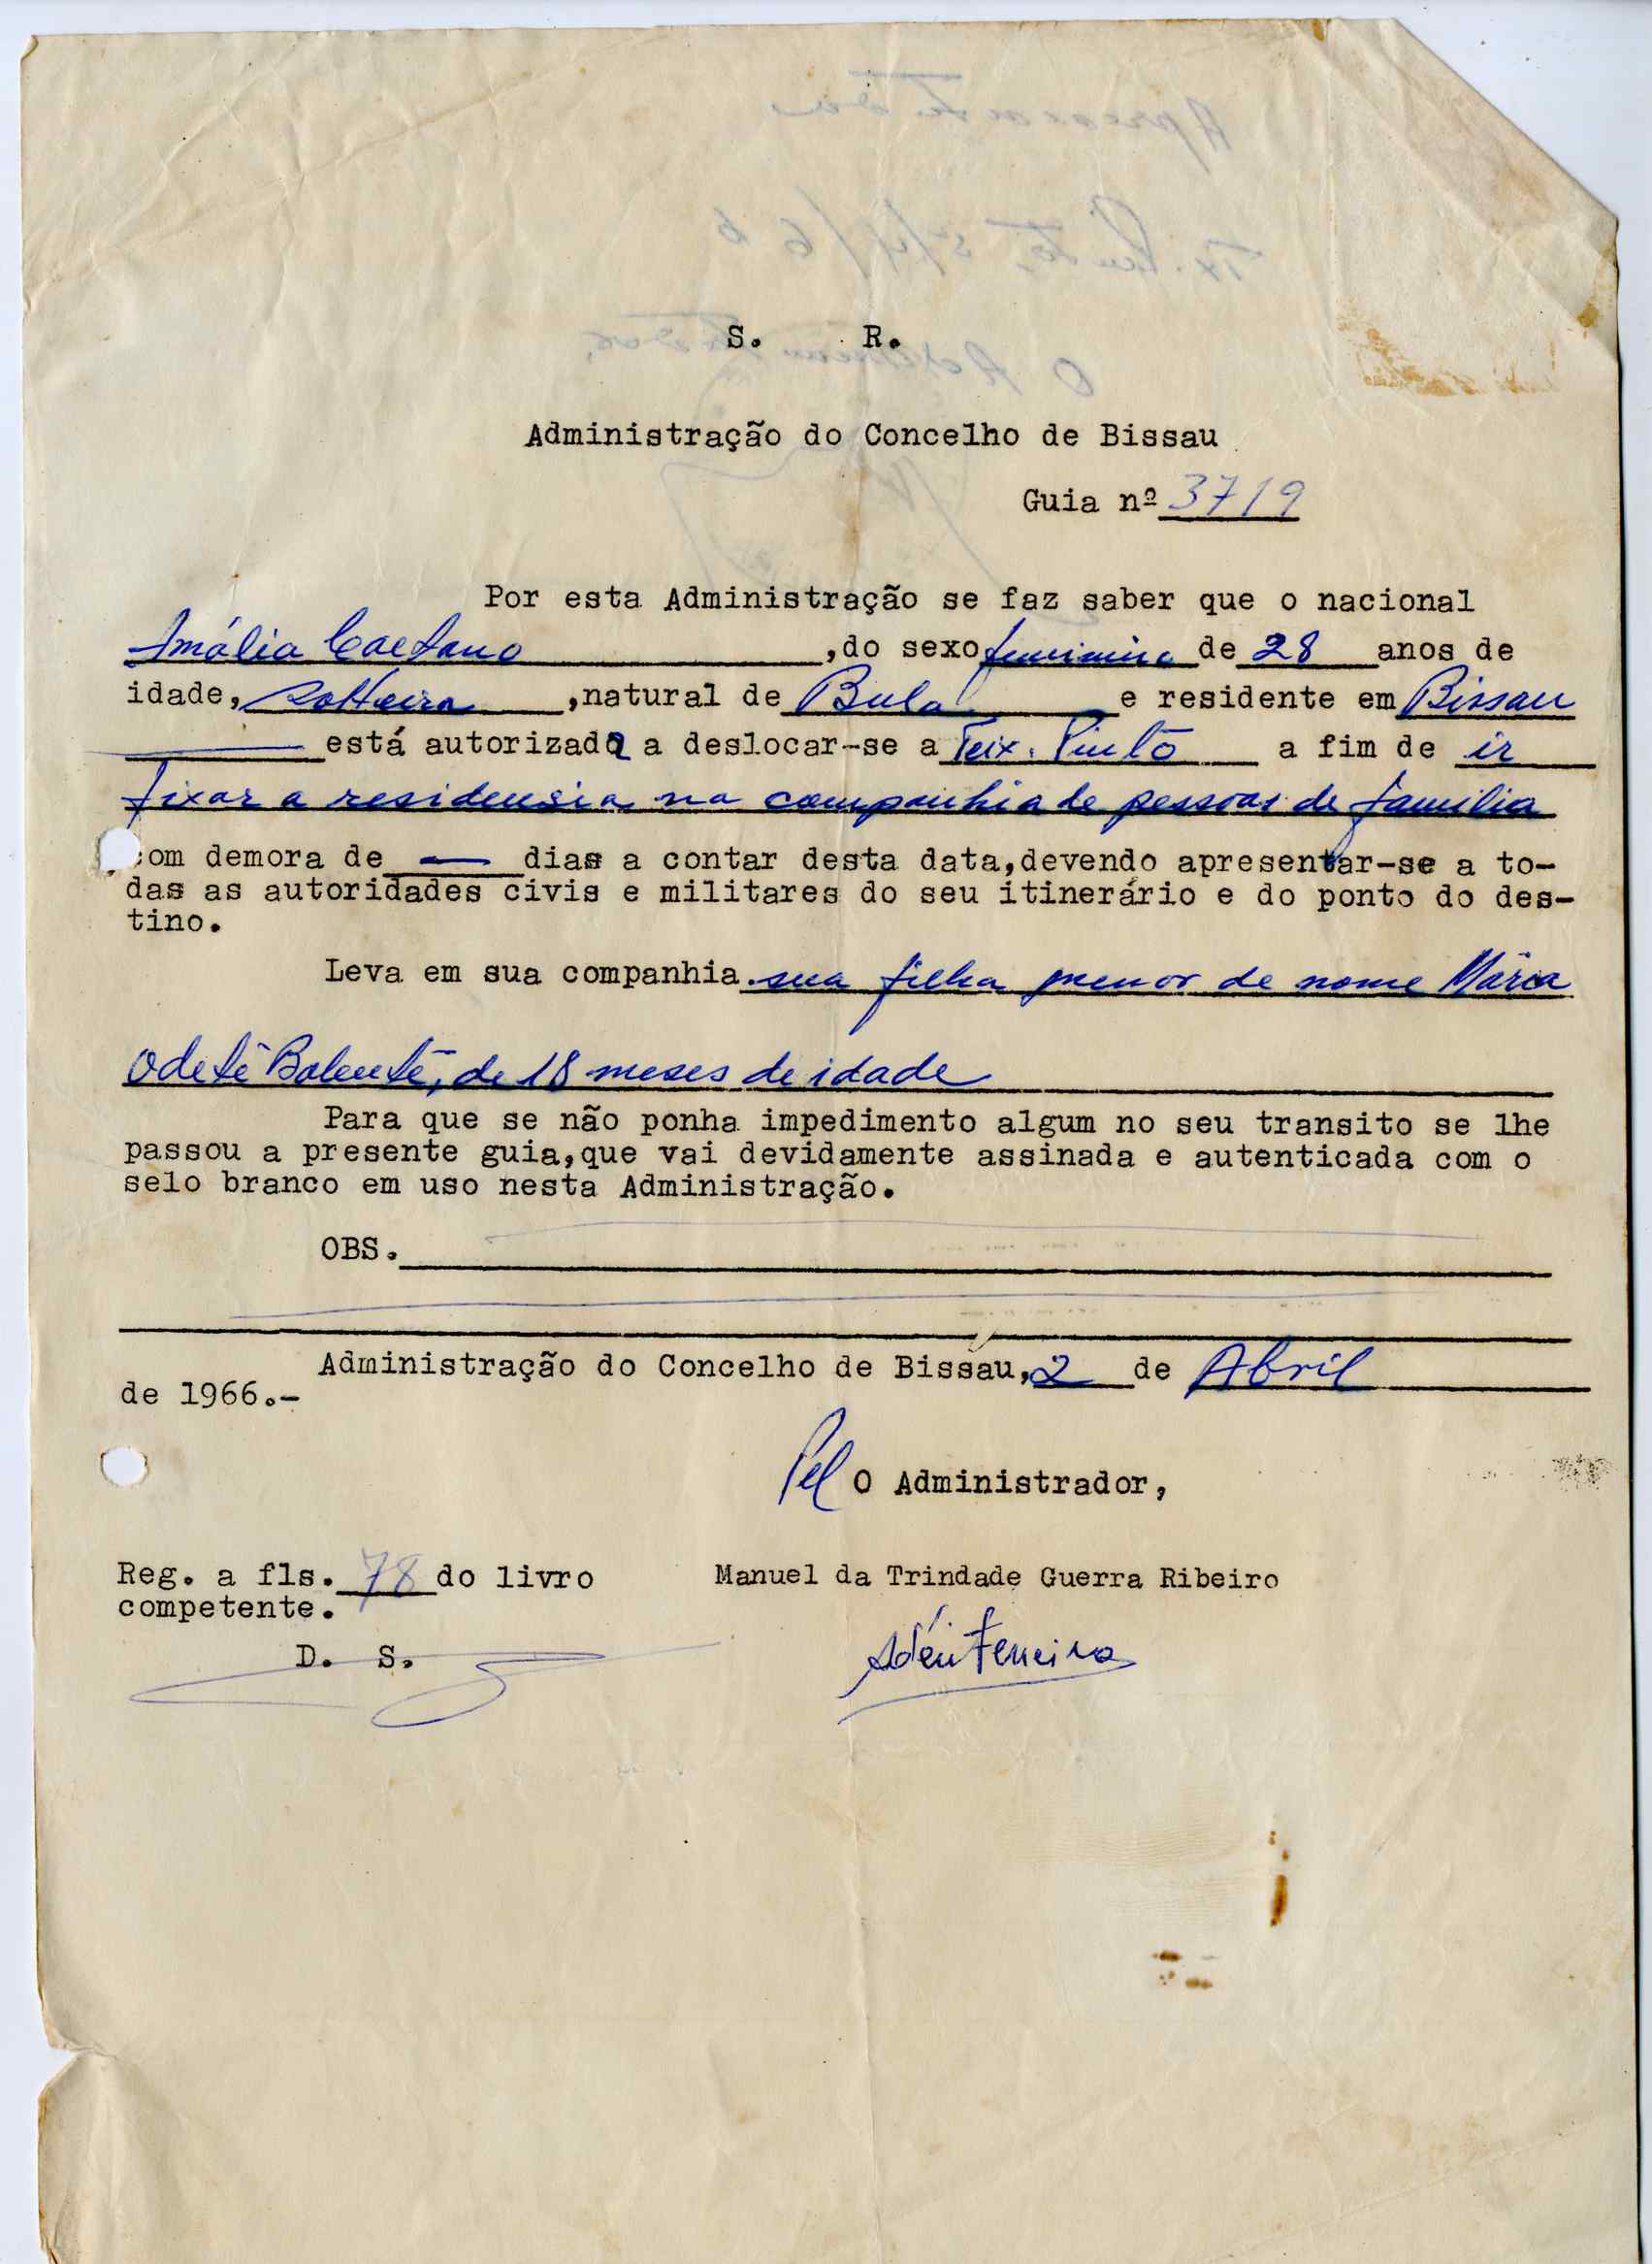 S. R.
Administração do Concelho de Bissau
Guia nº 3719
Por esta Administração se faz saber que o nacional
Amália Caetano ,do sexo feminino de 28 anos de
idade, solteira ,natural de Bula e residente em Bissau
está autorizada a deslocar-se a Teix. Pinto a fim de ir
fixar a residensia na companhia de pessoas de familia
com demora de — dias a contar desta data,devendo apresentar-se a to-
das as autoridades civis e militares do seu itinerário e do ponto do des-
tino.
Leva em sua companhia sua filha menor de nome Mária
Odete Balente, de 18 meses de idade
Para que se não ponha impedimento algum no seu transito se lhe
passou a presente guia,que vai devidamente assinada e autenticada com o
selo branco em uso nesta Administração.
OBS.
Administração do Concelho de Bissau, 2 de Abril
de 1966.-
Pel O Administrador,
Reg. a fls. 78 do livro
competente.
Manuel da Trindade Guerra Ribeiro
D. S.
Ferreira